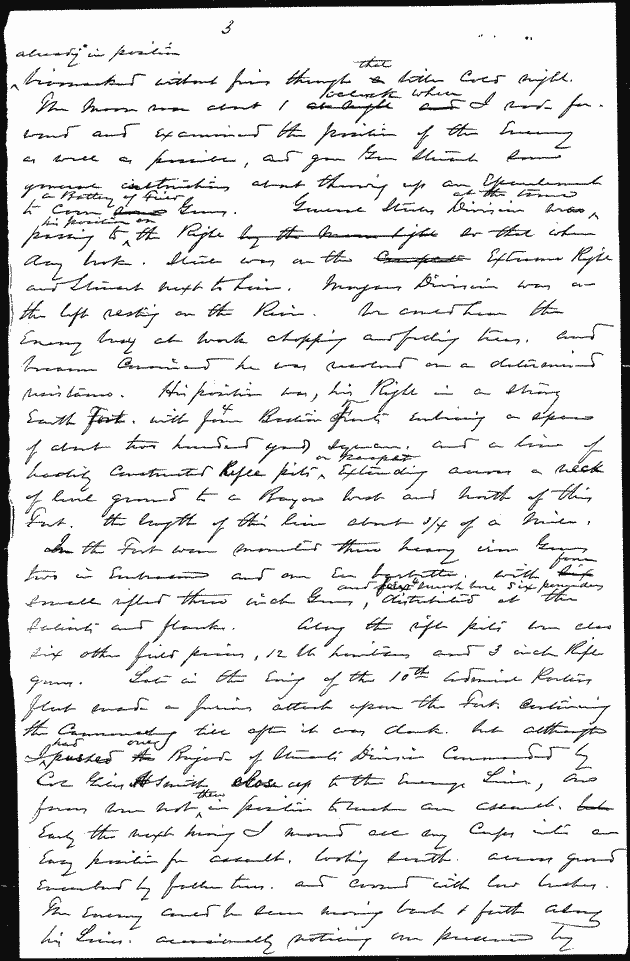 3
already in position
bivouacked without fires through a bitter cold night. that
The moon rose about 1 oclock when at night and I rode for-
ward and examined the position of the Enemy
as well as possible, and gave Gen Stuart some
general instructions about throwing up an Epaulement
a Battery of Field
to cover some Guns. General Steeles Division was at the time
his position on
passing to the Right by the moon light so that when
day broke. Steele was on the Extreme Right
and Stuart next to him. Morgans Division was on
the left resting on the River. We could hear the
Enemy busy at work chopping and felling trees. and
became convinced he was resolved on a determined
resistance. His position was, his Right in a strong
Earth Fort. with four 4 Bastion fronts enclosing a space
of about two hundred yards square. and a line of
hastily constructed Rifle pits, Extending across a neck
of level ground to a Bayou west and north of this
Fort. the length of this line about 3/4 of a mile.
In the Fort were mounted three heavy iron Guns
two in Embrasure and one En barbette, with six four
small rifled three inch Guns, and four smooth bore six pounders distributed at the
salients and flanks. Along the rifle pits were also
six other field pieces, 12 lb howitzers and 3 inch Rifle
guns. Late in the Evng of the 10th Admiral Porters
fleet made a furious attack upon the Fort. Continuing
the Cannonading till after it was dark. but although
had one
I pushed the Brigade of Stuarts Division Commanded by
Col Giles A Smith close up to the Enemys Lines, our
forces were not then in position to make an assault. but
Early the next mrng I moved all my Corps into an
Easy position for assault. looking south. across ground
Encumbered by fallen trees. and covered with low bushes.
The Enemy could be seen moving back & forth along
his Lines. occasionally noticing our presence by